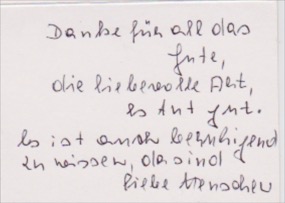 Danke für all das
Gute,
die liebevolle Art,
es tut gut.
Es ist auch beruhigend
zu wissen, da sind
liebe Menschen